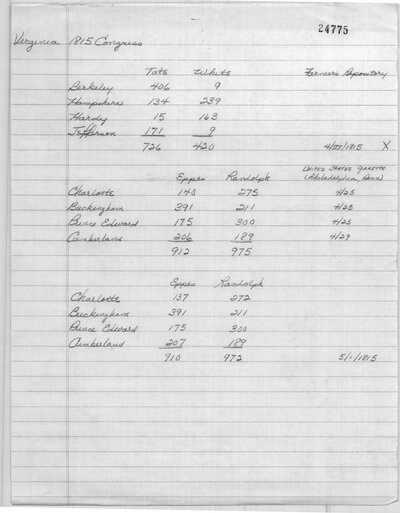 24775
Virginia 1815 Congress
Tate White Farmers Repository
Berkeley 406 9
Hampshire 134 239
Hardy 15 163
Jefferson 171 9
726 420 4/27/1815 X
United States Gazette
Eppes Randolph (Philadelphia, Penn)
Charlotte 140 275 4/25
Buckingham 391 211 4/25
Prince Edward 175 300 4/25
Cumberland 206 189 4/29
912 975
Eppes Randolph
Charlotte 137 272
Buckingham 391 211
Prince Edward 175 300
Cumberland 207 189
910 972 5/1/1815